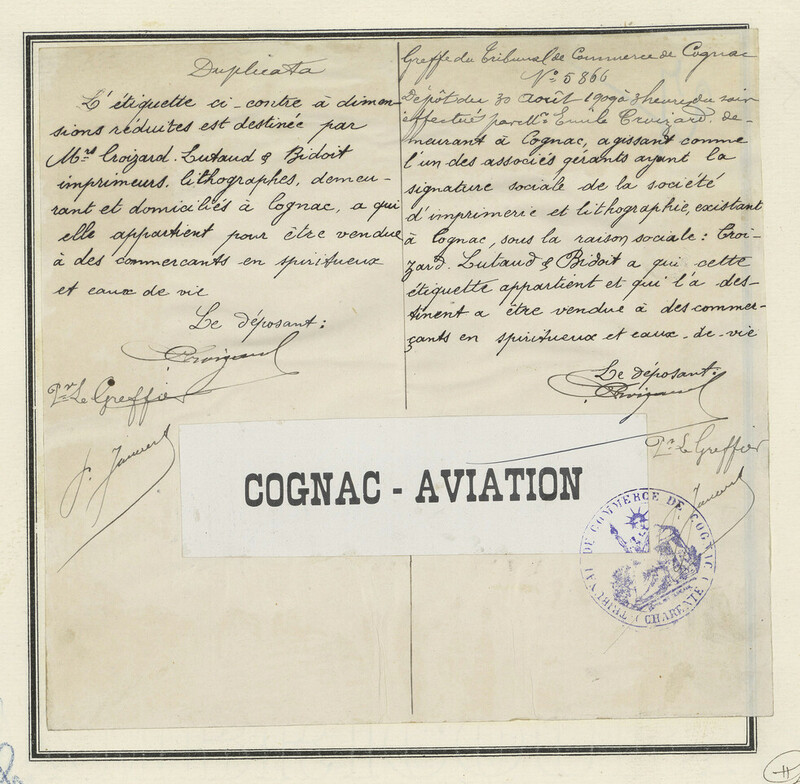 Duplicata
L'étiquette ci-contre à dimen-
sions réduites est destinée par
Mrs Croizard. Lutaud & Bidoit
imprimeurs, lithographes, demeu-
rant et domiciliés à Cognac, a qui
elle appartient pour être vendue
à des commerçants en spiritueux
et eaux de vie
Le déposant:
Croizard
Pr. Le Greffier
Greffe du Tribunal de Commerce de Cognac
No 5866
Dépôt du 30 Août 1909 à 3 heures du soir
effectué par Mr. Emile Croizard. de-
meurant à Cognac, agissant comme
l'un des associés gérants ayant la
signature sociale de la société
d'imprimerie et lithographie, existant
à Cognac, sous la raison sociale: Croi-
zard. Lutaud & Bidoit a qui cette
étiquette appartient et qui l'a des-
tinent a être vendue à des commer-
çants en spiritueux et eaux-de-vie
Le déposant:
Croizard
Pr. Le Greffier
COGNAC - AVIATION
TRIBUNAL DE COMMERCE DE COGNAC
(CHARENTE)